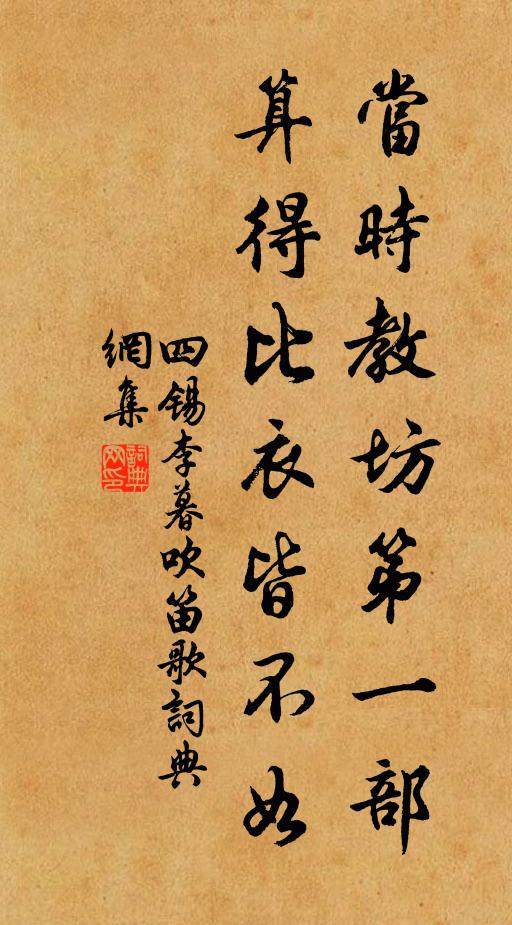 當時教坊第一部
算得比衣皆不如
四錫李暮吹笛歌詞典
網集
詞典網印